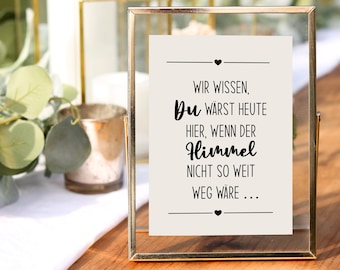 WIR WISSEN,
Du WÄRST HEUTE
HIER, WENN DER
Himmel
NICHT SO WEIT
WEG WÄRE ...